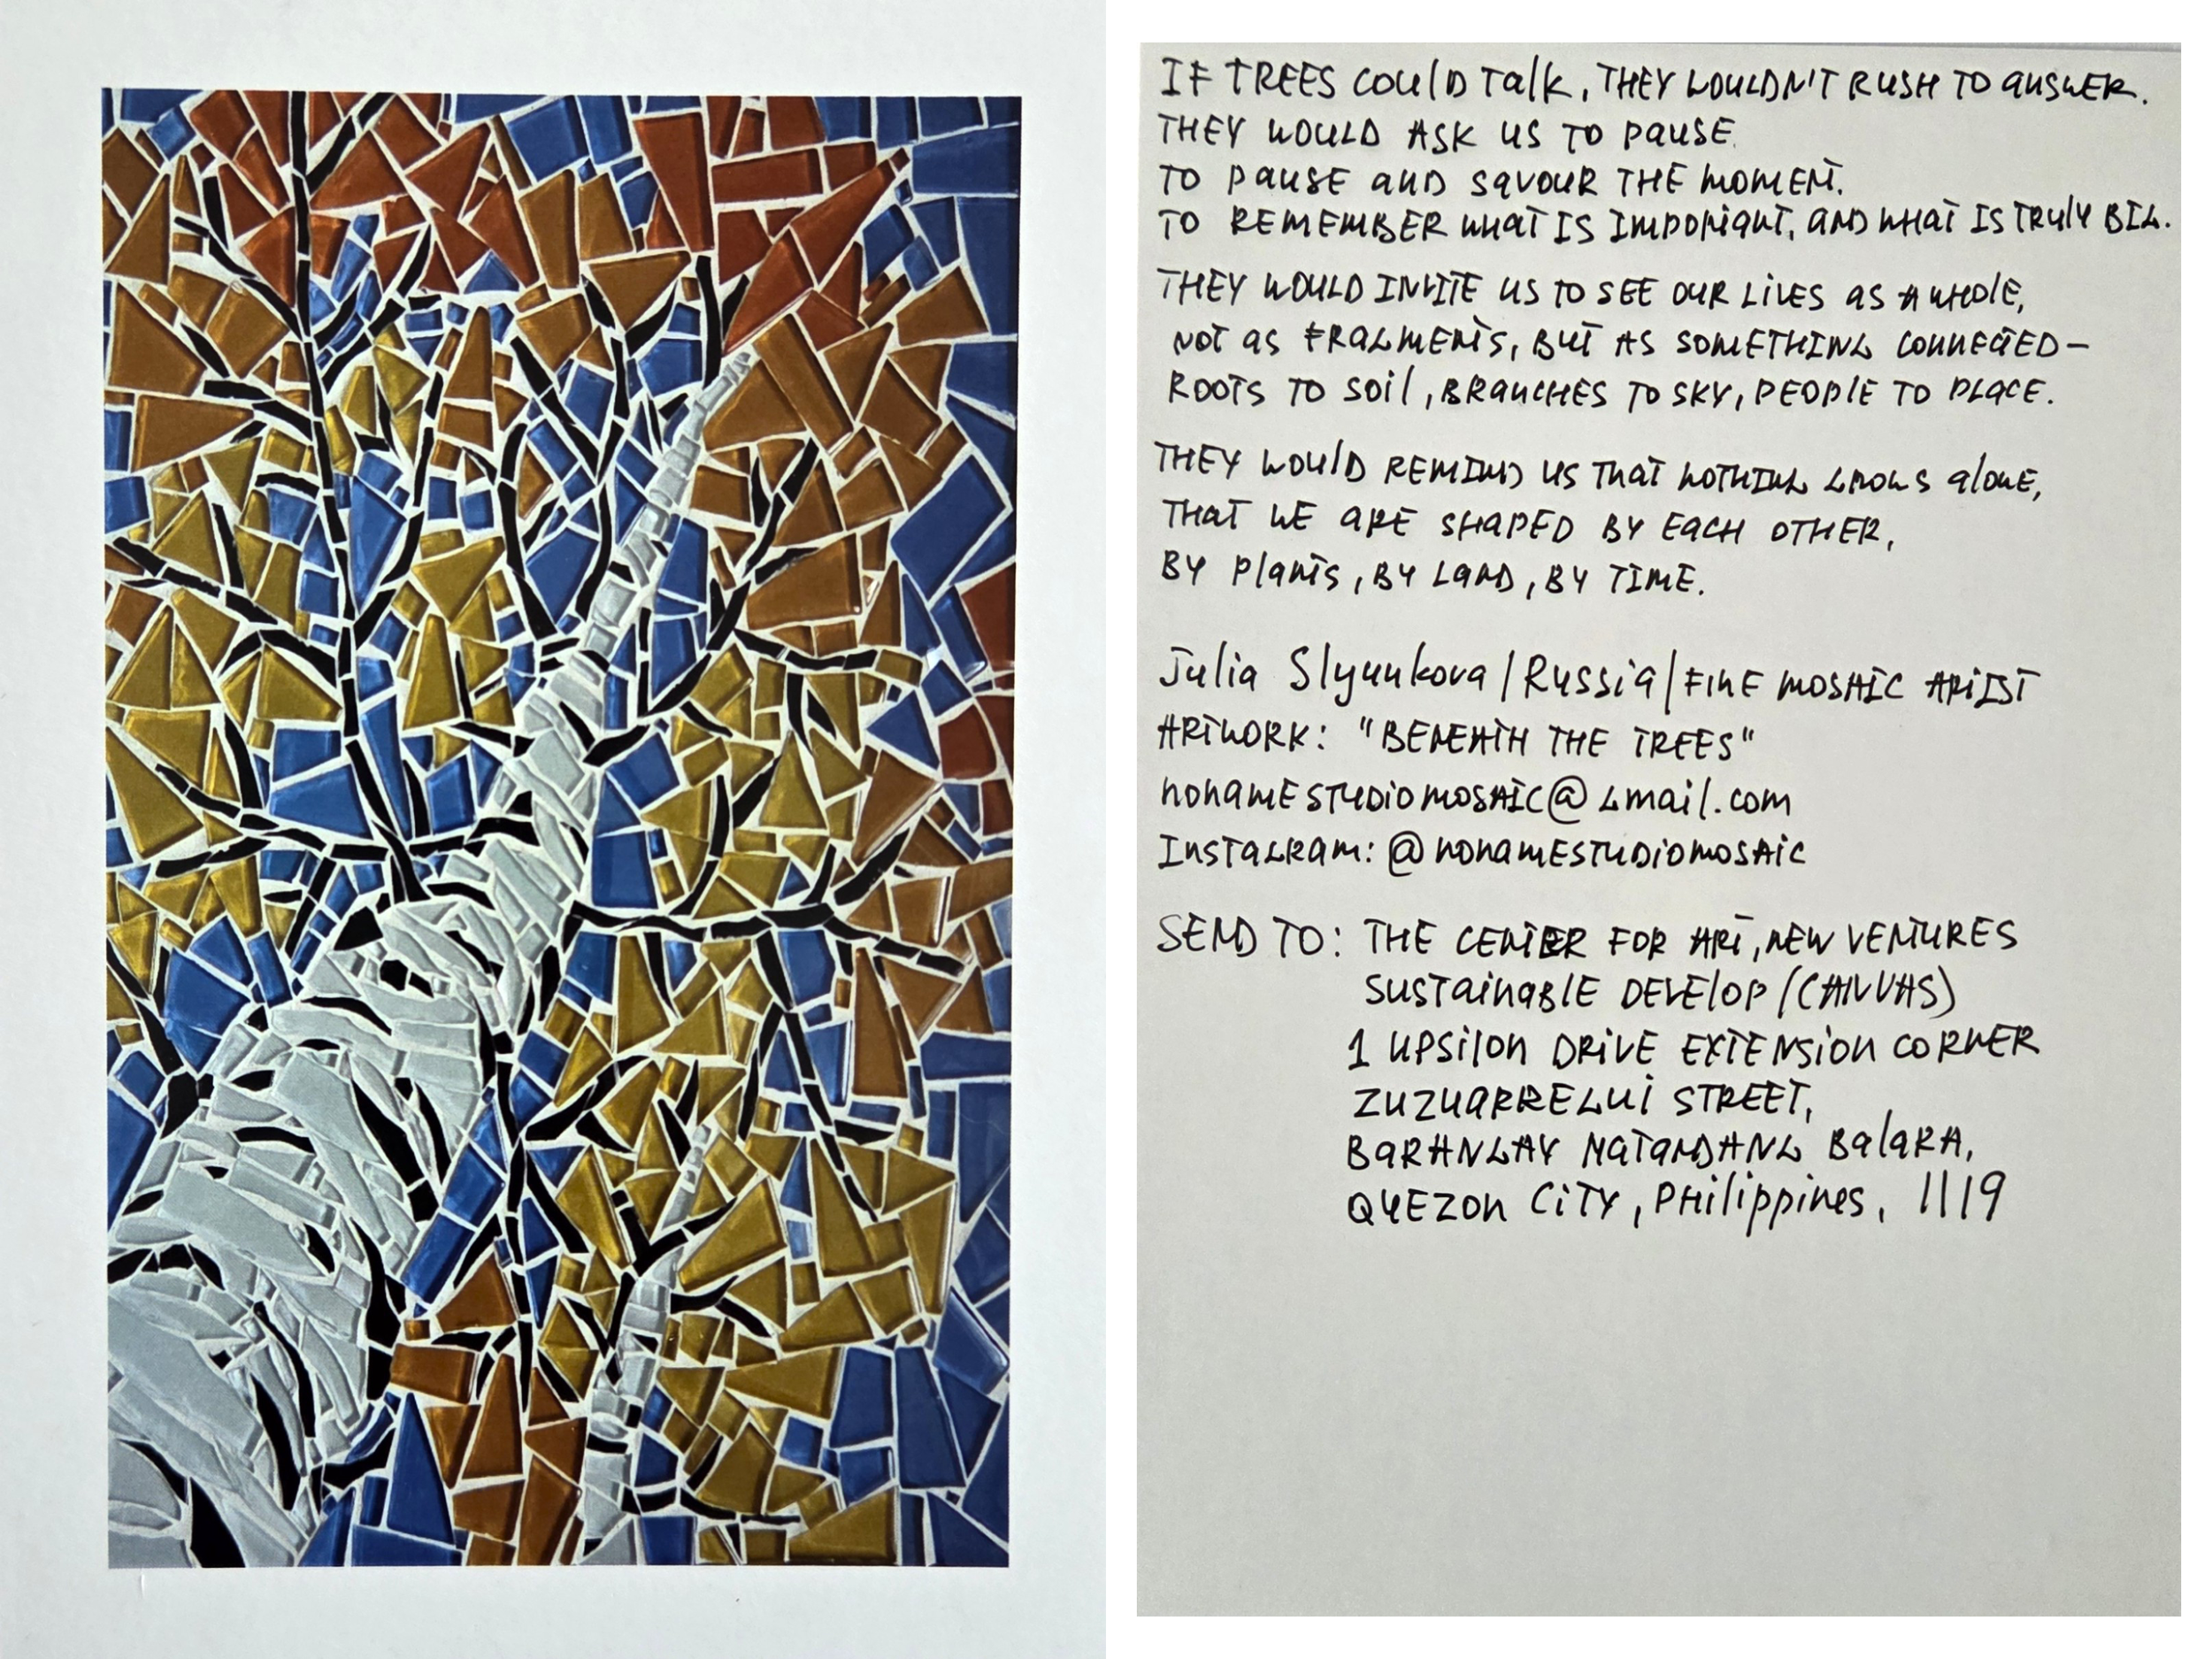 IF TREES COULD TALK, THEY WOULDN'T RUSH TO ANSWER.
THEY WOULD ASK US TO PAUSE.
TO PAUSE AND SAVOUR THE MOMENT.
TO REMEMBER WHAT IS IMPORTANT, AND WHAT IS TRULY BIG.
THEY WOULD INVITE US TO SEE OUR LIVES AS A WHOLE,
NOT AS FRAGMENTS, BUT AS SOMETHING CONNECTED—
ROOTS TO SOIL, BRANCHES TO SKY, PEOPLE TO PLACE.
THEY WOULD REMIND US THAT NOTHING GROWS ALONE,
THAT WE ARE SHAPED BY EACH OTHER,
BY PLANTS, BY LAND, BY TIME.
Julia Slyunkova / Russia / FINE MOSAIC ARTIST
ARTWORK: "BENEATH THE TREES"
nonamestudiomosaic@gmail.com
Instagram: @nonamestudiomosaic
SEND TO: THE CENTER FOR ART, NEW VENTURES
SUSTAINABLE DEVELOP / (CANVAS)
1 UPSILON DRIVE EXTENSION CORNER
ZUZUARREGUI STREET,
BARANGAY MATANDANG BALARA,
QUEZON CITY, PHILIPPINES, 1119